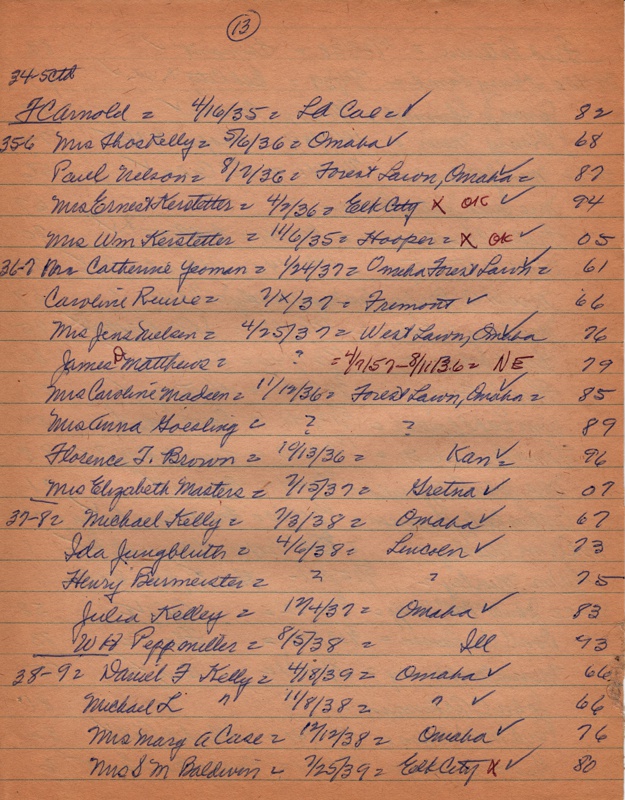 13
34-5 Ctd
F C Arnold = 4/16/35 = Ld Cal = ✓ 82
35-6 Mrs Thos Kelly = 5/6/36 = Omaha ✓ 68
Paul Nelson = 8/7/36 = Forest Lawn, Omaha = ✓ 87
Mrs Ernest Kerstetter = 4/2/36 = Elk City X OK ✓ 94
Mrs Wm Kerstetter = 11/6/35 = Hooper = X OK ✓ 05
36-7 Mrs Catherine Yeoman = 1/24/37 = Omaha Forest Lawn = ✓ 61
Caroline = 7/X/37 = Fremont ✓ 66
Mrs Jens Nielsen = 4/25/37 = West Lawn, Omaha 76
James D Matthews = ? = 4/7/57-8/11/36 = NE 79
Mrs Caroline Madsen = 11/12/36 = Forest Lawn, Omaha = ✓ 85
Mrs Anna Goesling = ? ? 89
Florence T. Brown = 10/13/36 Kan ✓ = 96
Mrs Elizabeth Masters = 7/15/37 = Gretna ✓ 07
37-8 = Michael Kelly = 7/3/38 = Omaha ✓ 67
Ida Jungbluth = 4/6/38 = Lincoln ✓ 73
Henry Burmeister = ? ? 75
Julia Kelley = 12/4/37 = Omaha ✓ 83
W H Peppmiller = 8/5/38 = Ill 93
38-9 = Daniel F Kelly = 4/18/39 = Omaha ✓ 66
Michael L " 11/8/38 = " ✓ 66
Mrs Mary A Case = 12/12/38 = Omaha ✓ 76
Mrs S M Baldwin = 7/25/39 = Elk City X ✓ 80